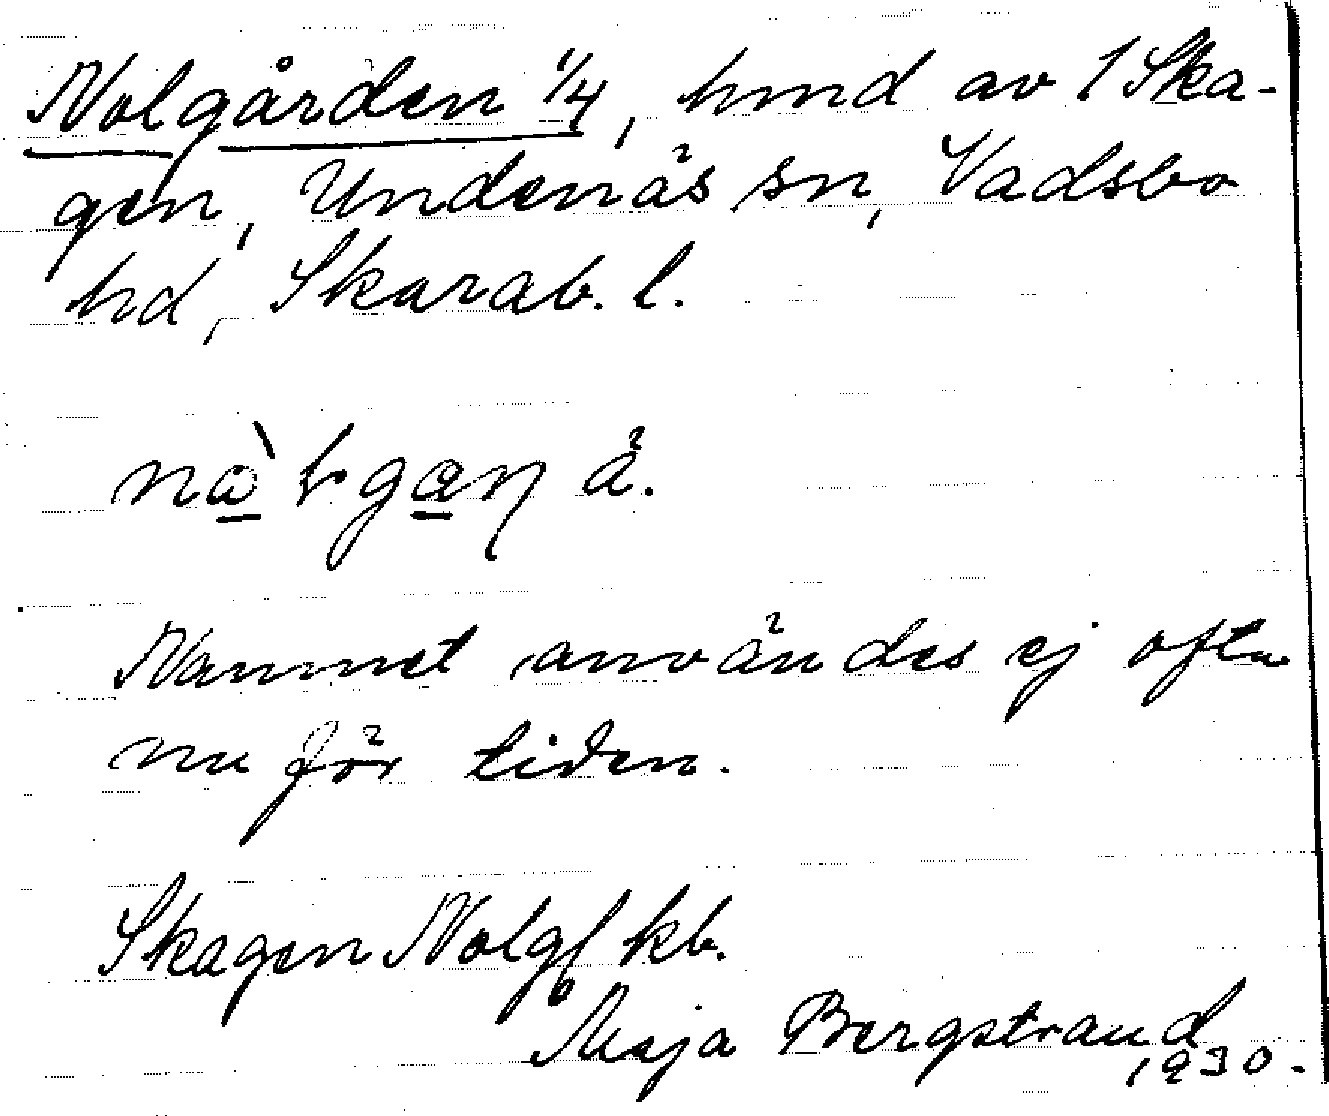 Nolgården 1/4, hmd av 1 Ska-
gen, Undenäs sn, Vadsbo
hd, Skarab. l.
ä.
Namnet användes ej ofta
nu för tiden.
Skagen Nolg kb.
Maja Bergstrand
1930.